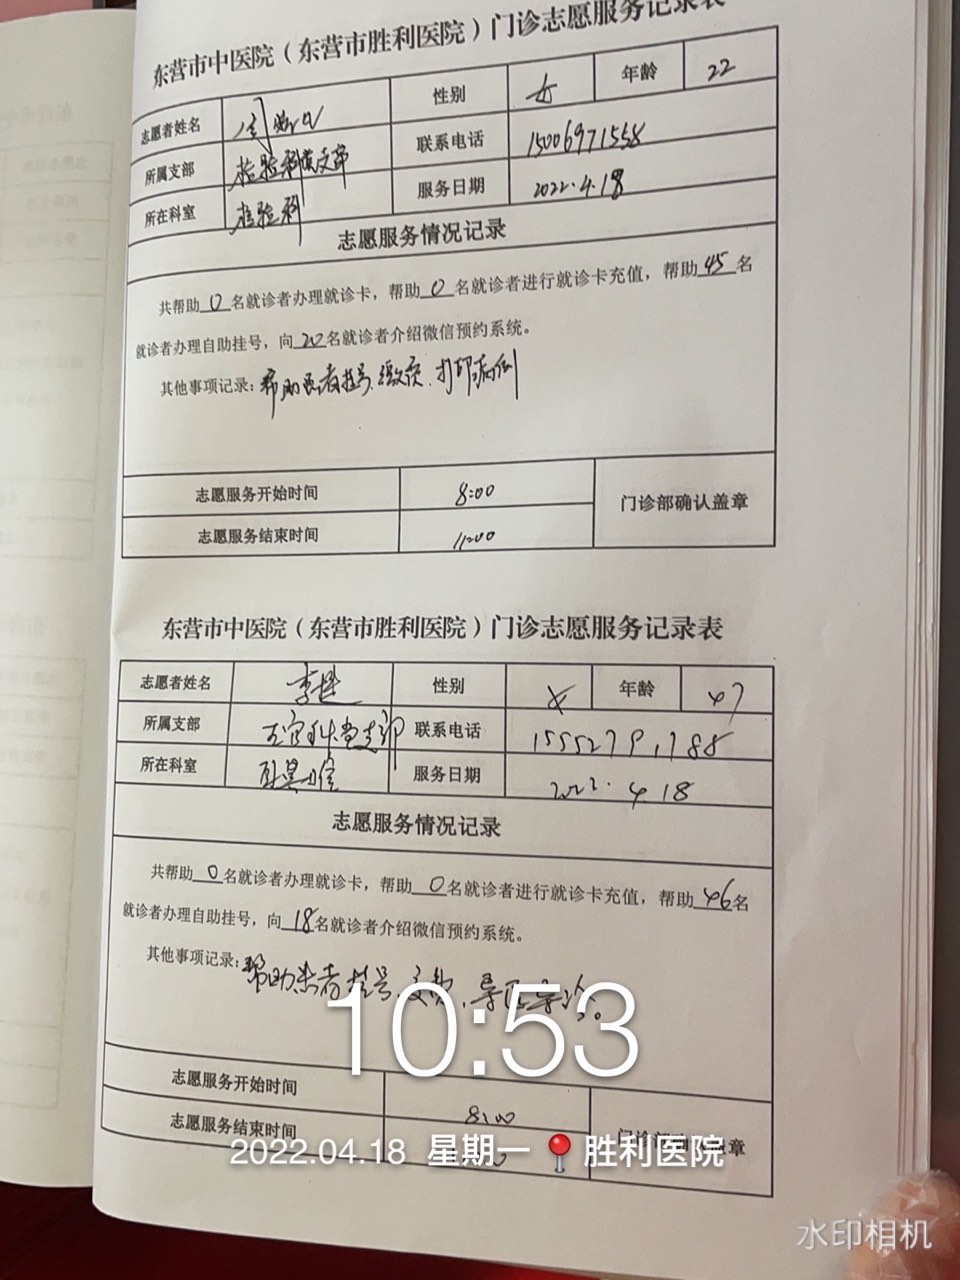 东营市中医院（东营市胜利医院）门诊志愿服务记录表
志愿者姓名 性别 女 年龄 22
所属支部 检验科党支部 联系电话 15006971558
所在科室 检验科 服务日期 2022.4.18
志愿服务情况记录
共帮助0名就诊者办理就诊卡，帮助0名就诊者进行就诊卡充值，帮助45名
就诊者办理自助挂号，向20名就诊者介绍微信预约系统。
其他事项记录：帮助患者挂号、缴费、打印病例
志愿服务开始时间 8:00 门诊部确认盖章
志愿服务结束时间 11:00
东营市中医院（东营市胜利医院）门诊志愿服务记录表
志愿者姓名 性别 女 年龄 47
所属支部 五官科党支部 联系电话 15552791788
所在科室 服务日期 2022.4.18
志愿服务情况记录
共帮助0名就诊者办理就诊卡，帮助0名就诊者进行就诊卡充值，帮助46名
就诊者办理自助挂号，向18名就诊者介绍微信预约系统。
其他事项记录：帮助患者挂号、交费，导医导诊。
10:53
志愿服务开始时间 8:00
志愿服务结束时间 门诊部确认盖章
2022.04.18 星期一 胜利医院
水印相机